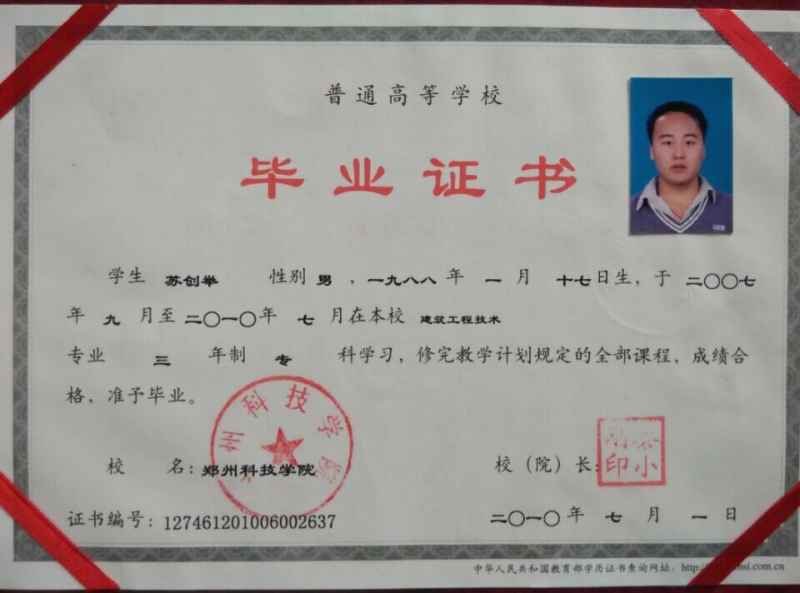 普通高等学校
毕业证书
学生 苏创举 性别 男 ，一九八八 年 一 月 十七日生，于 二〇〇七
年 九 月至 二〇一〇年 七 月在本校 建筑工程技术
专业 三 年制 专 科学习，修完教学计划规定的全部课程，成绩合
格，准予毕业。
州科技学院
校 名：郑州科技学院
校（院）长：
印小
证书编号：127461201006002637
二〇一〇 年 七 月 一 日
中华人民共和国教育部学历证书查询网址：http:// si.com.cn